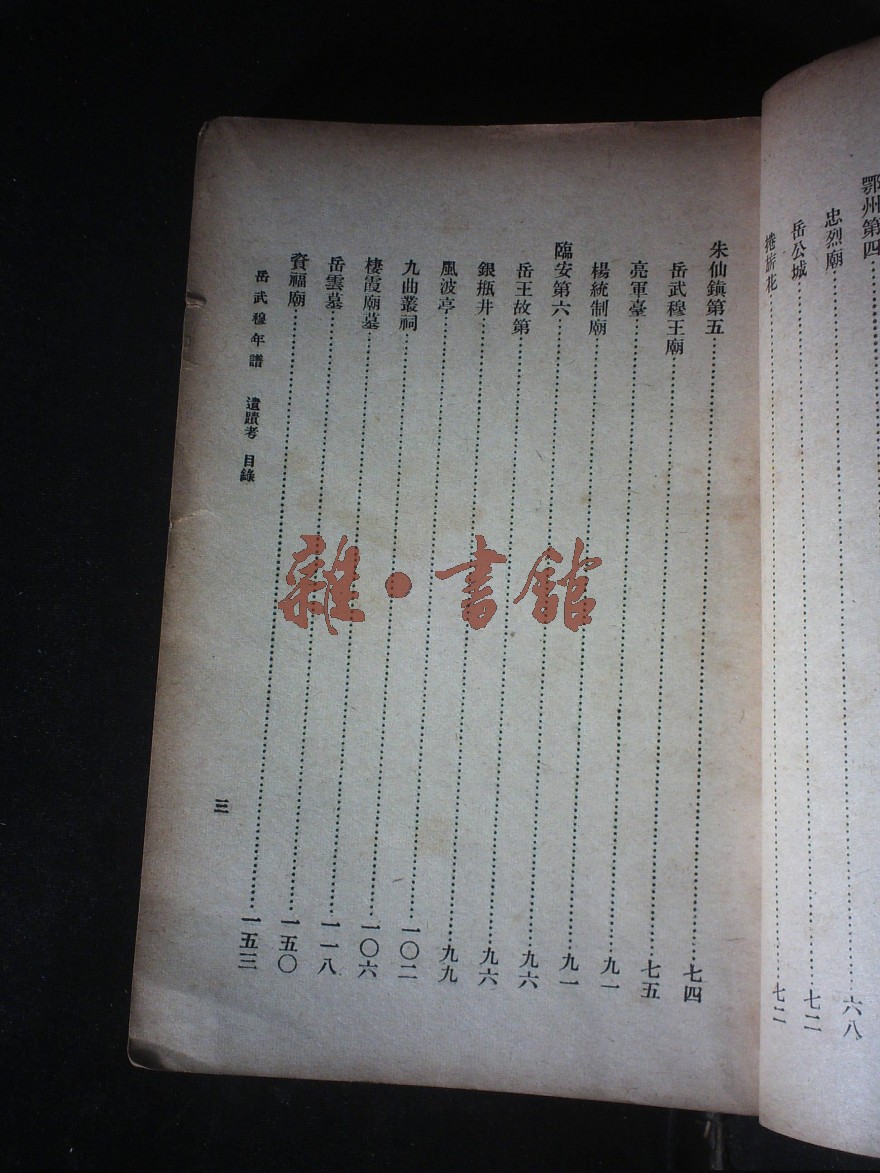 鄂州第四
忠烈廟……六八
岳公城……七二
……七二
朱仙鎮第五……七四
岳武穆王廟……七五
亮軍臺……九一
楊統制廟……九一
臨安第六……九六
岳王故第……九六
銀瓶井……九九
風波亭……一〇二
九曲叢祠……一〇六
棲霞廟墓……一一八
岳雲墓……一五〇
資福廟……一五三
岳武穆年譜 遺蹟考 目錄
三
雜・書館